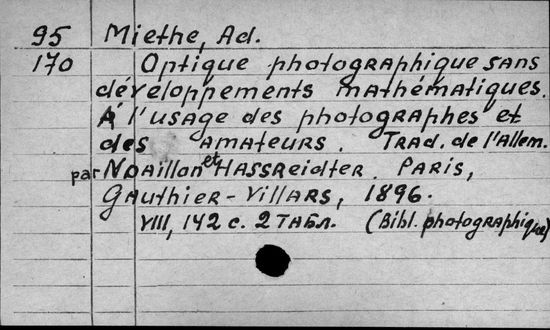 95 Miethe, Ad.
170 Optique photographique sans
développements mathématiques.
À l'usage des photographes et
des amateurs. Trad. de l'Allem.
par Noaillon et Hassreidter. Paris,
Gauthier-Villars, 1896.
VIII, 142 с. 2 табл. (Bibl. photographique)